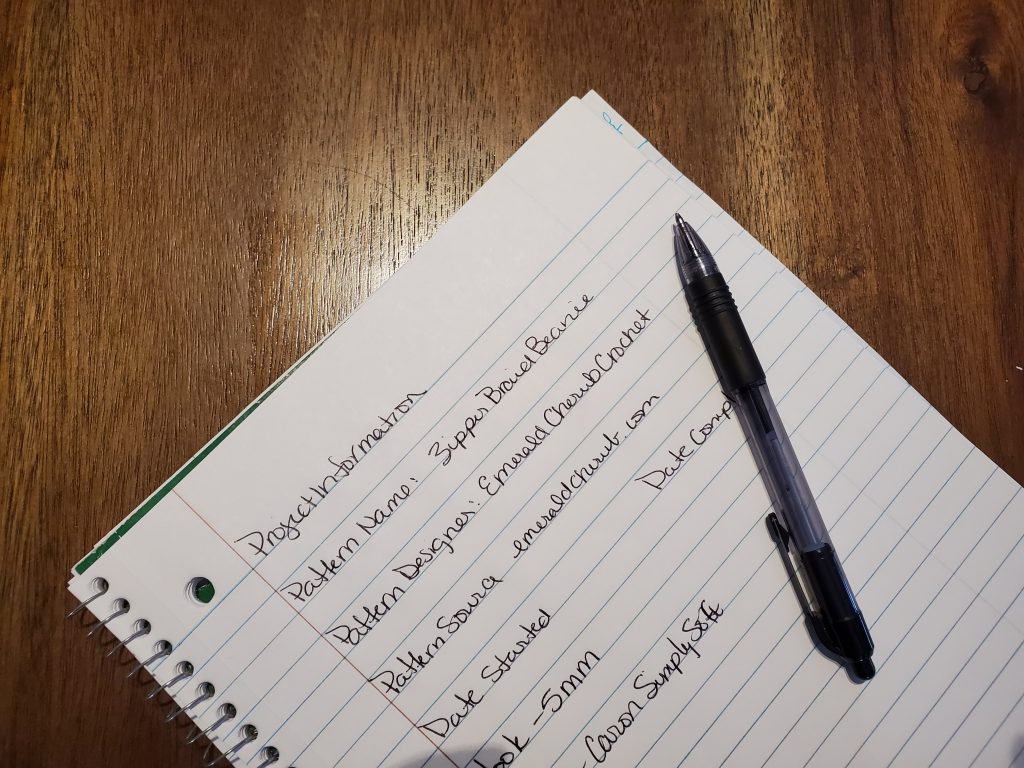 Project Information
Pattern Name: Zipper Braid Beanie
Pattern Designer: Emerald Cherub Crochet
Pattern Source emeraldcherub.com
Date Started Date Comp
ook - 5mm
- Caron Simply Soft